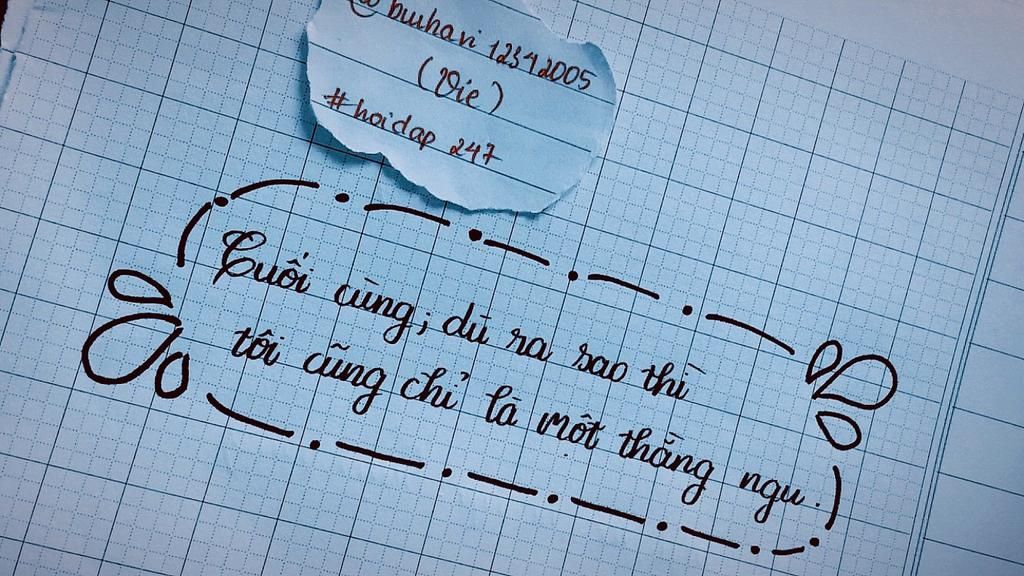 @buihari12342005
(Vie)
#hoidap 247
Cuối cùng, dù ra sao thì
tôi cũng chỉ là một thằng ngu.